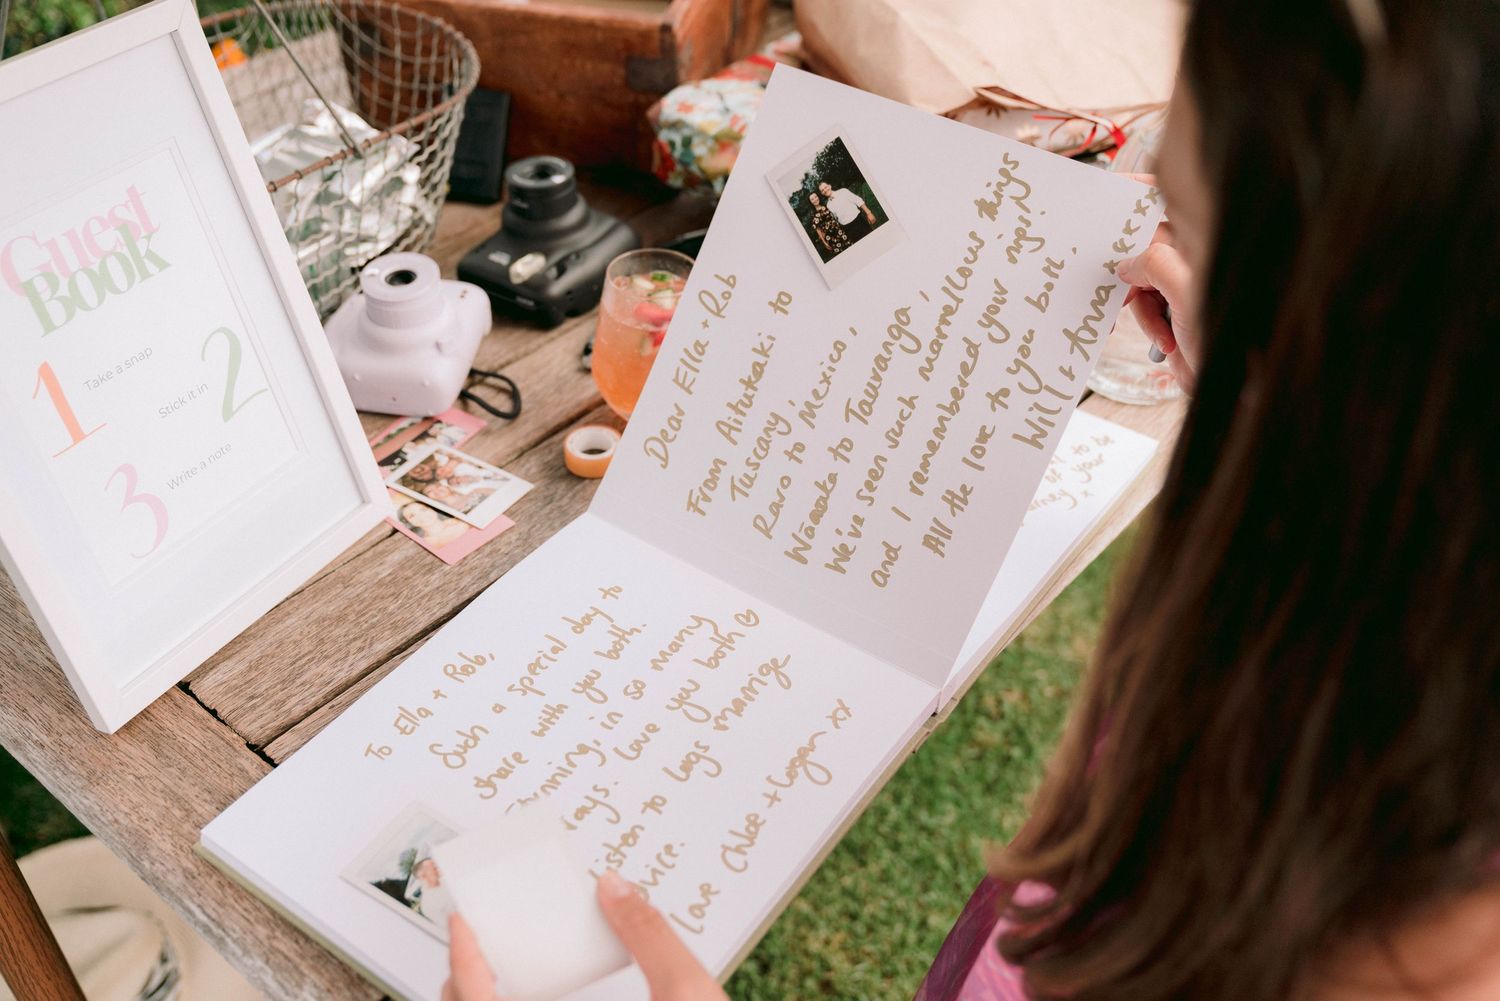 Guest
Book
1 Take a snap
Stick it in 2
3 Write a note
Dear Ella + Rob
From Aitutaki to
Tuscany,
Raro to Mexico,
Wānaka to Tauranga,
We've seen such marvellous things
and I remembered your ring!
All the love to you both.
Will & Anna xxxxx
To Ella + Rob,
Such a special day to
share with you both.
in so many
Love you both
listen to Logs marrige
Love Chloe + Logan xx
to be
your